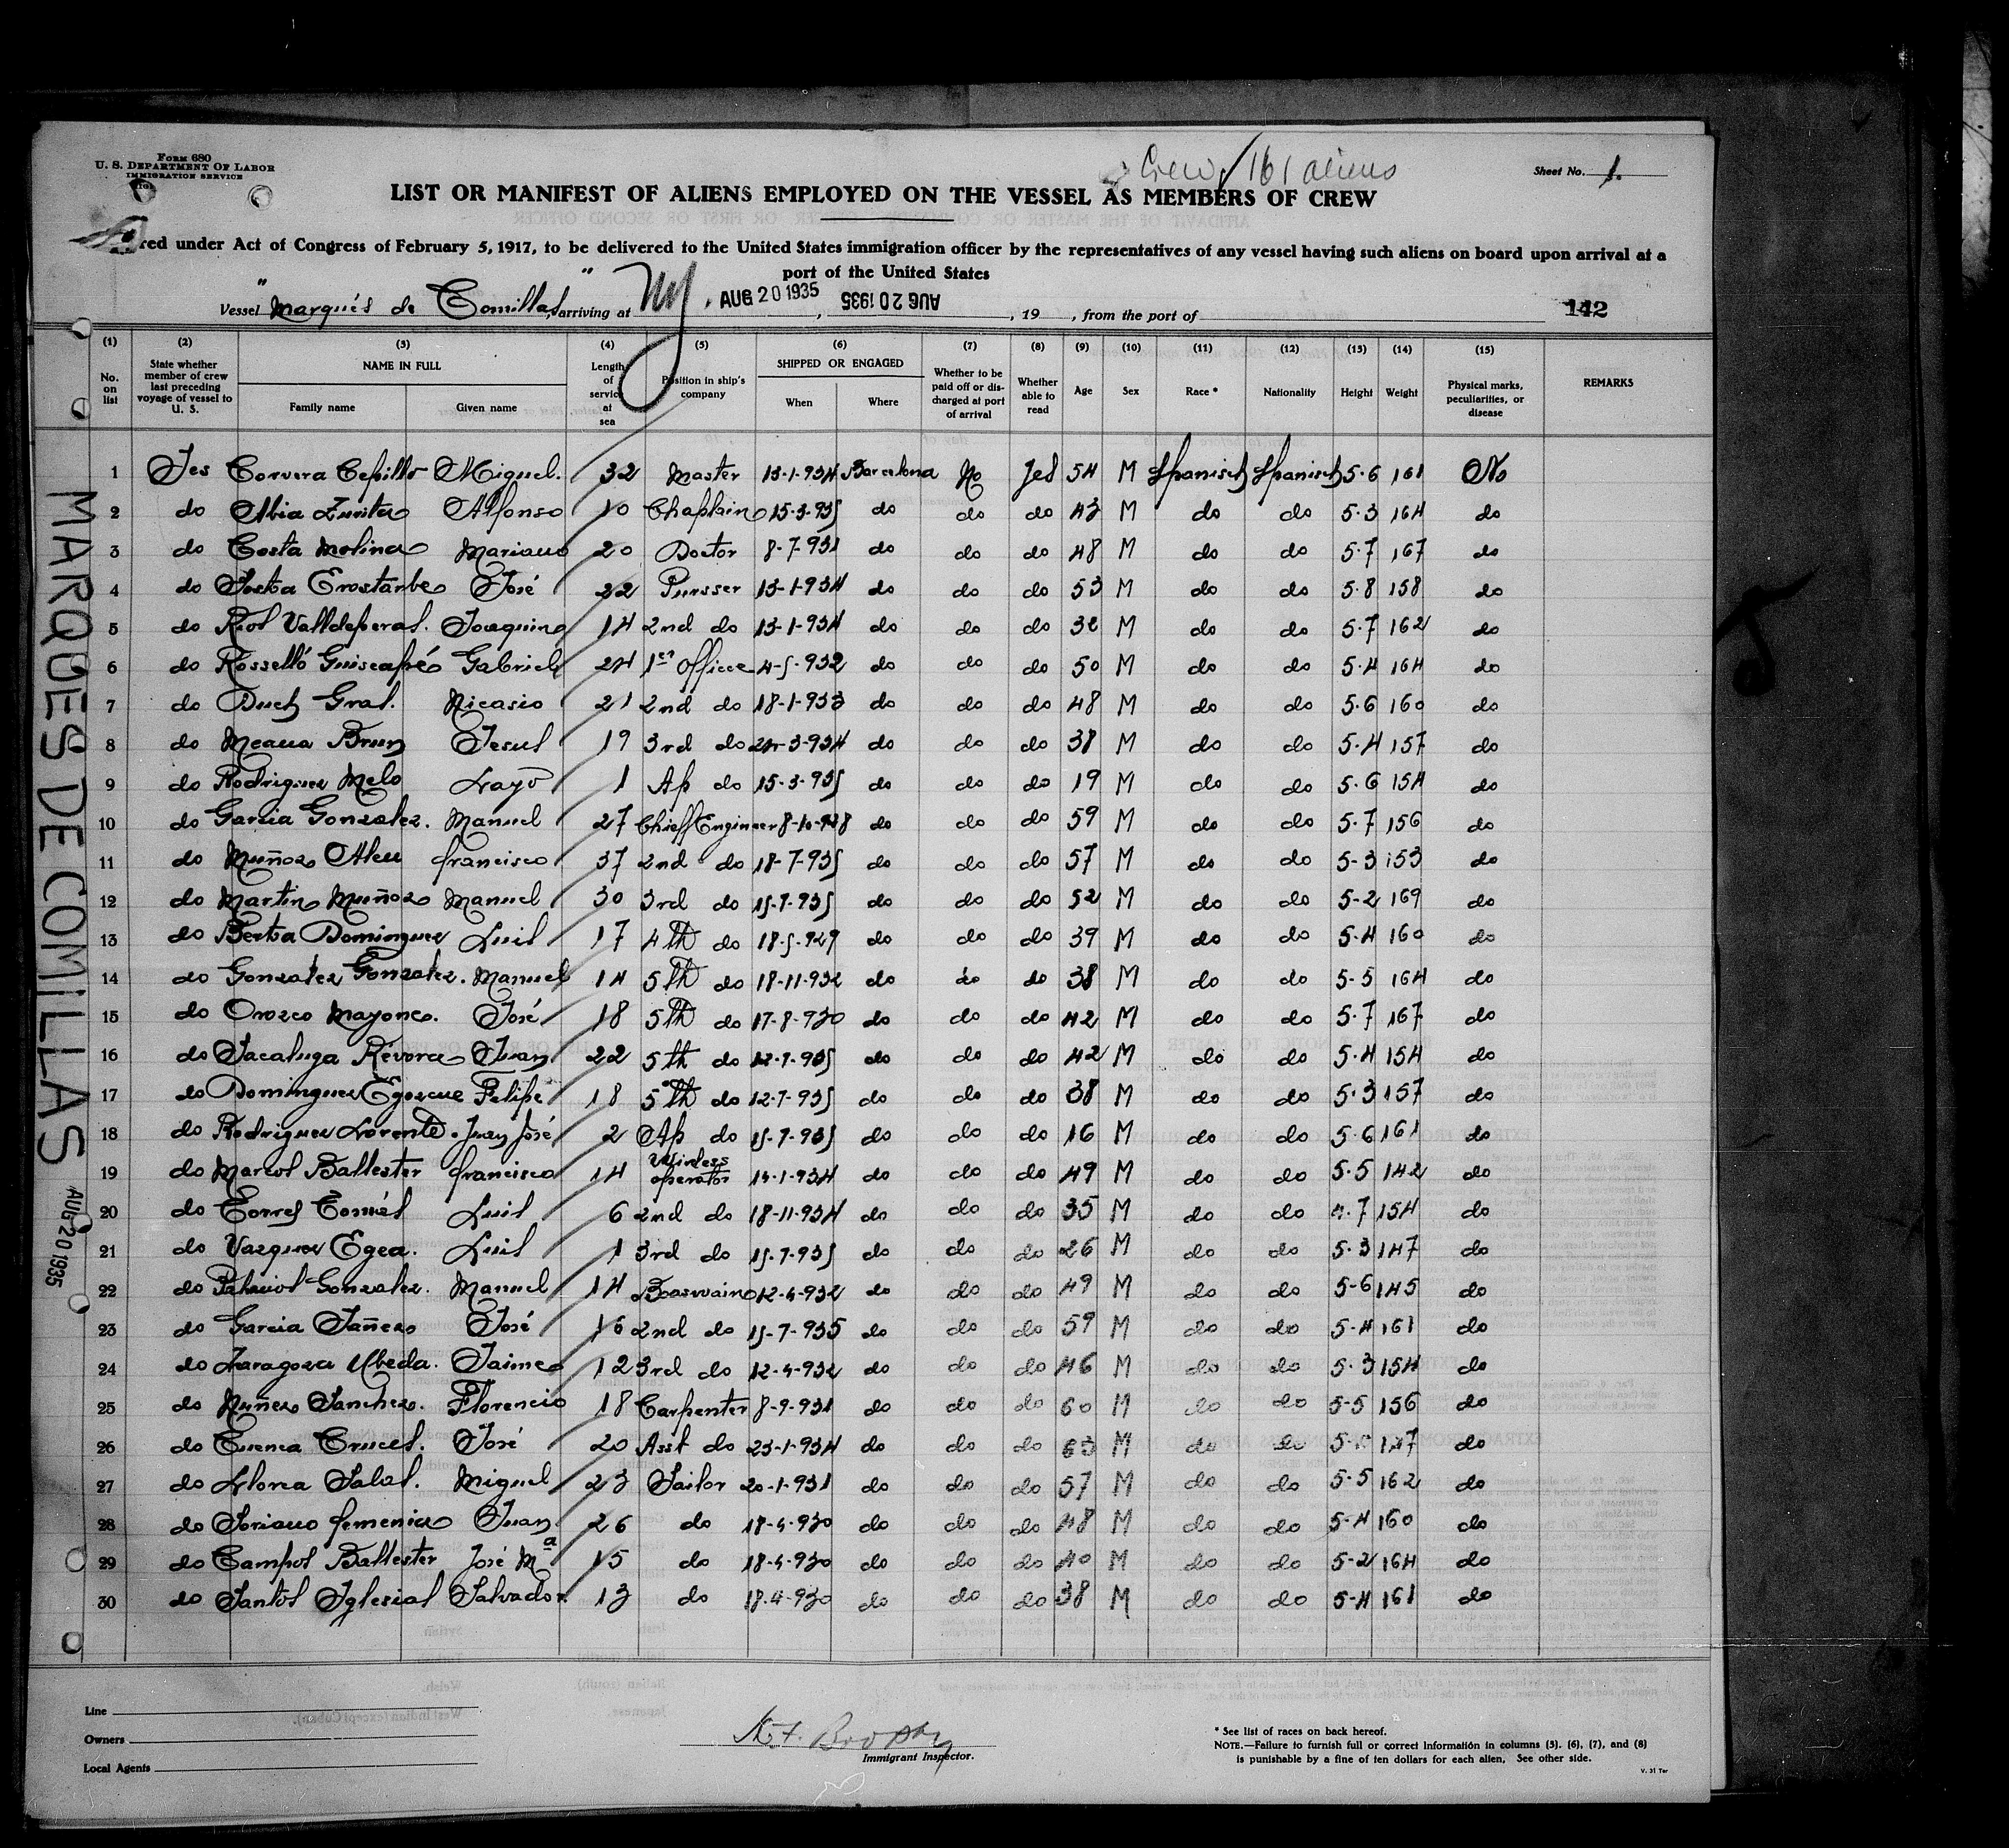 Form 680
U. S. DEPARTMENT OF LABOR
IMMIGRATION SERVICE
Crew, 161 aliens
Sheet No. 1.
LIST OR MANIFEST OF ALIENS EMPLOYED ON THE VESSEL AS MEMBERS OF CREW
red under Act of Congress of February 5, 1917, to be delivered to the United States immigration officer by the representatives of any vessel having such aliens on board upon arrival at a
port of the United States
Vessel "Marqués de Comillas", arriving at NY, AUG 20 1935, AUG 20 1935, 19 , from the port of 142
(1) (2) (3) (4) (5) (6) (7) (8) (9) (10) (11) (12) (13) (14) (15)
No. on list State whether member of crew last preceding voyage of vessel to U. S. NAME IN FULL Family name Given name Length of service at sea Position in ship's company SHIPPED OR ENGAGED When Where Whether to be paid off or discharged at port of arrival Whether able to read Age Sex Race * Nationality Height Weight Physical marks, peculiarities, or disease REMARKS
1 Jes Corvera Cepillo Miguel. 32 Master 13-1-934 Barcelona No Jes 54 M Spanisch Spanisch 5-6 161 No
2 do Abia Zurita Alfonso 10 Chaplain 15-3-935 do do do 43 M do do 5-3 164 do
3 do Costa Molina Mariano 20 Doctor 8-7-931 do do do 48 M do do 5-7 167 do
4 do Erostarbe José 22 Pursser 13-1-934 do do do 53 M do do 5-8 158 do
5 do Riol Valldeperas. Joaquin 14 2nd do 13-1-934 do do do 38 M do do 5-7 162 do
6 do Rosselló Guiscafré Gabriel 24 1er Officer 4-5-932 do do do 50 M do do 5-4 164 do
7 do Duch Gras. Nicasio 21 2nd do 18-1-933 do do do 48 M do do 5-6 160 do
8 do Meana Brun Jesus 19 3rd do 24-3-934 do do do 38 M do do 5-4 157 do
9 do Rodriguez Melo 1 Ap do 15-3-935 do do do 19 M do do 5-6 154 do
10 do Garcia Gonzalez. Manuel 27 Chieff Engineer 8-10-928 do do do 59 M do do 5-7 156 do
11 do Muñoz Aleu francisco 37 2nd do 18-7-935 do do do 57 M do do 5-3 153 do
12 do Martin Muñoz Manuel 30 3rd do 15-7-935 do do do 52 M do do 5-2 169 do
13 do Dominguez Luis 17 4th do 18-5-929 do do do 39 M do do 5-4 160 do
14 do Gonzalez Gonzalez. Manuel 14 5th do 18-11-932 do do do 38 M do do 5-5 164 do
15 do Orozco Mayonco. José 18 5th do 17-8-930 do do do 42 M do do 5-7 167 do
16 do Sacaluga Revora Juan 22 5th do 12-7-935 do do do 42 M do do 5-4 154 do
17 do Dominguez Egozcue Felipe 18 5th do 12-7-935 do do do 38 M do do 5-3 157 do
18 do Rodriguez Lorente. Juan José 2 Ap do 15-7-935 do do do 16 M do do 5-6 161 do
19 do Marcos Ballester francisco 14 Wireless operator 14-1-934 do do do 49 M do do 5-5 142 do
20 do Torres Tomás Luis 6 2nd do 18-11-934 do do do 35 M do do 4-7 154 do
21 do Vazquez Egea. Luis 1 3rd do 15-7-935 do do do 26 M do do 5-3 147 do
22 do Gonzalez. Manuel 14 Boaswain 12-4-932 do do do 49 M do do 5-6 145 do
23 do Garcia José 16 2nd do 15-7-935 do do do 59 M do do 5-4 161 do
24 do Zaragoza Ubeda. Jaime 12 3rd do 12-4-932 do do do 46 M do do 5-3 154 do
25 do Nuñez Sanchez. Florencio 18 Carpenter 8-9-931 do do do 60 M do do 5-5 156 do
26 do Cuenca Cruces. José 20 Asst do 23-1-934 do do do 63 M do do 147 do
27 do Llorca Salas. Miguel 23 Sailor 20-1-931 do do do 57 M do do 5-5 162 do
28 do Soriano femenia Juan 26 do 18-4-930 do do do 48 M do do 5-4 160 do
29 do Campos Ballester José Mª 15 do 18-4-930 do do do 40 M do do 5-2 164 do
30 do Santos Iglesias Salvador. 13 do 18-4-930 do do do 38 M do do 5-4 161 do
MARQUES DE COMILLAS
AUG 20 1935
Line
Owners
Local Agents
Immigrant Inspector.
* See list of races on back hereof.
NOTE.—Failure to furnish full or correct information in columns (3), (6), (7), and (8)
is punishable by a fine of ten dollars for each alien. See other side.
V. 31 Ter